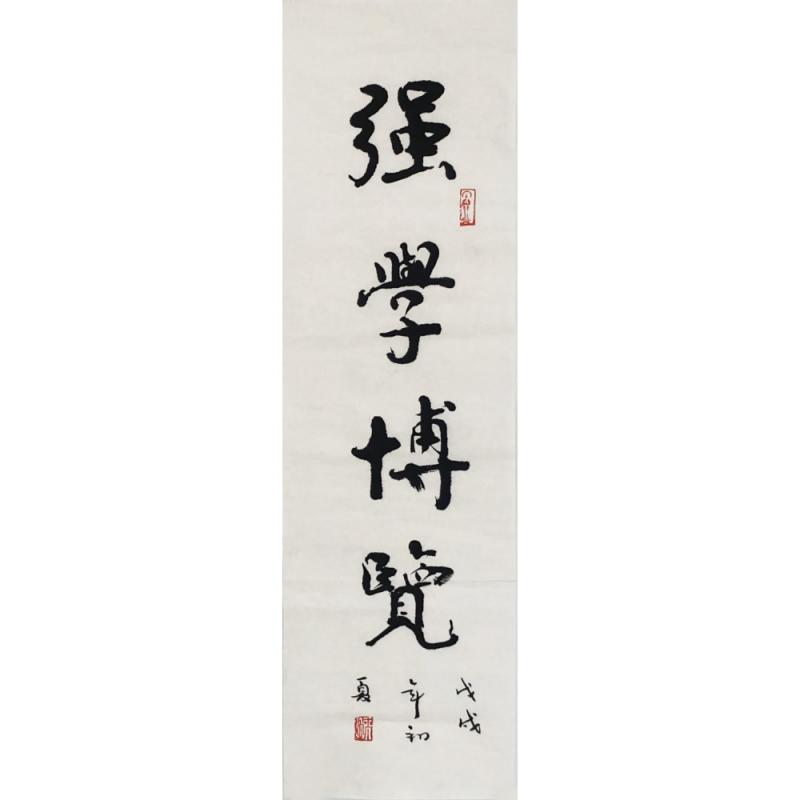 强學博覽
戊戌
年初
夏